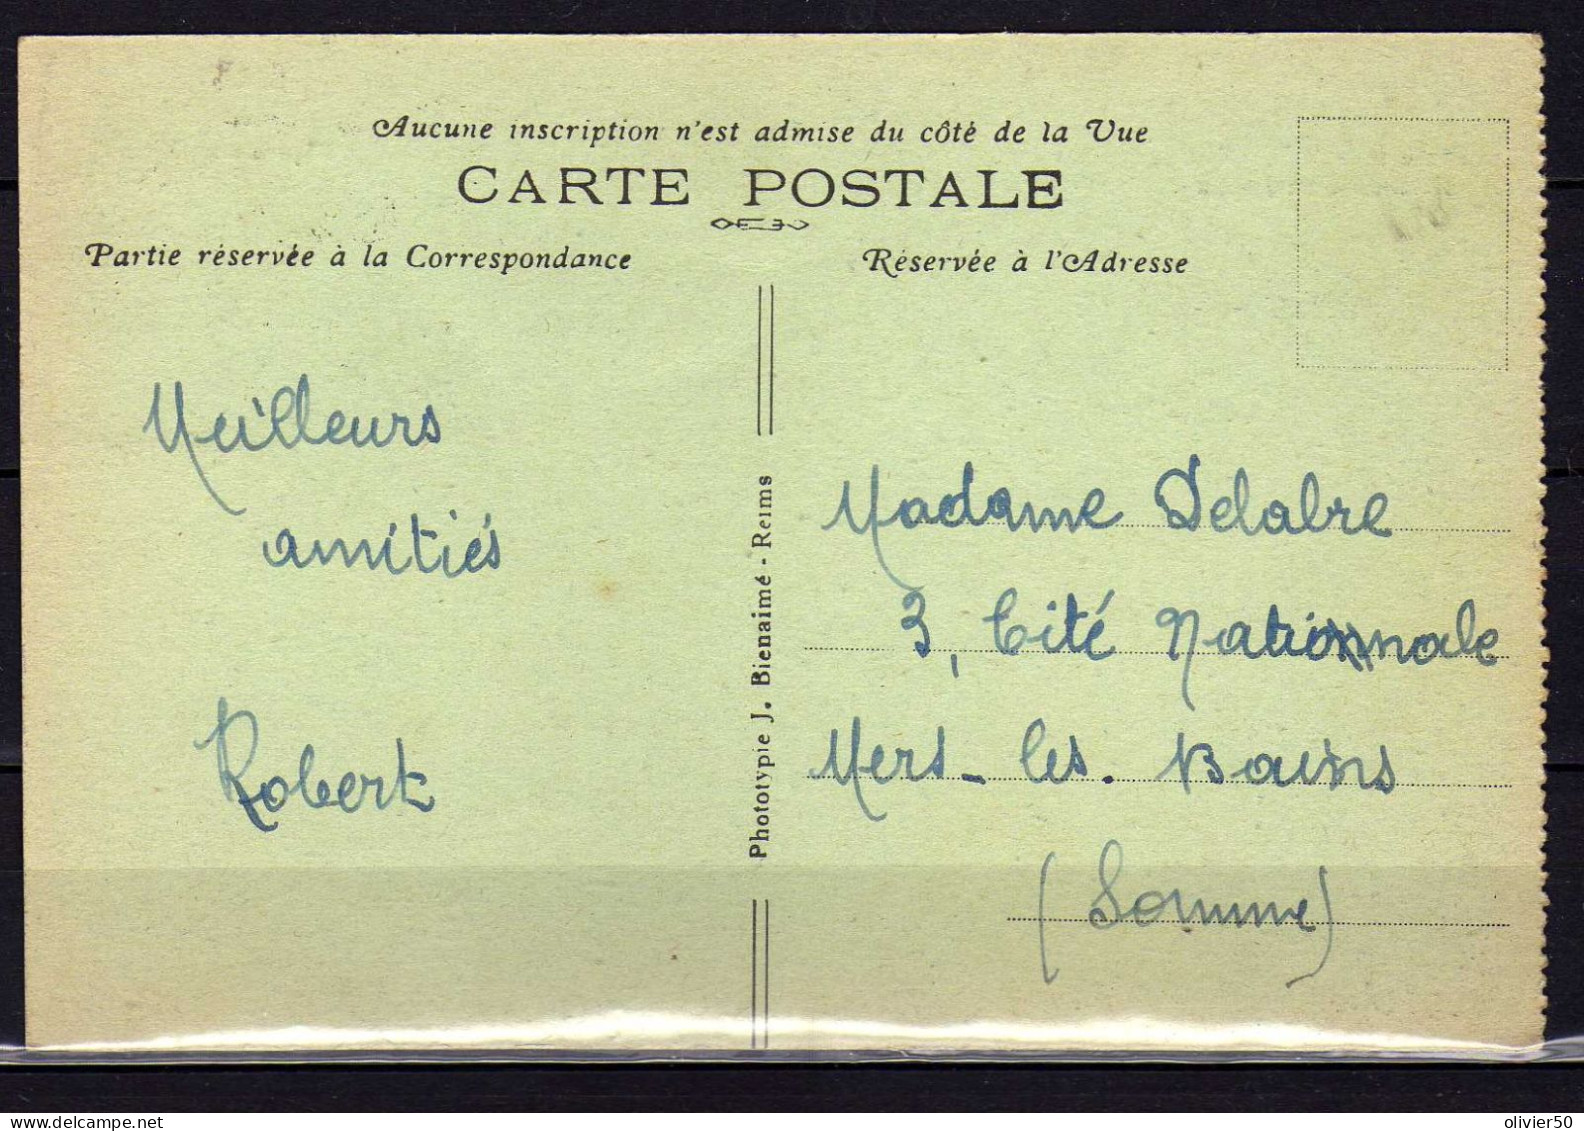 Aucune inscription n'est admise du côté de la Vue
CARTE POSTALE
Partie réservée à la Correspondance
Réservée à l'Adresse
Meilleurs
amitiés
Robert
Phototypie J. Bienaimé - Reims
Madame Delabre
3, Cité Nationale
Mers-les-Bains
(Somme)
olivier50